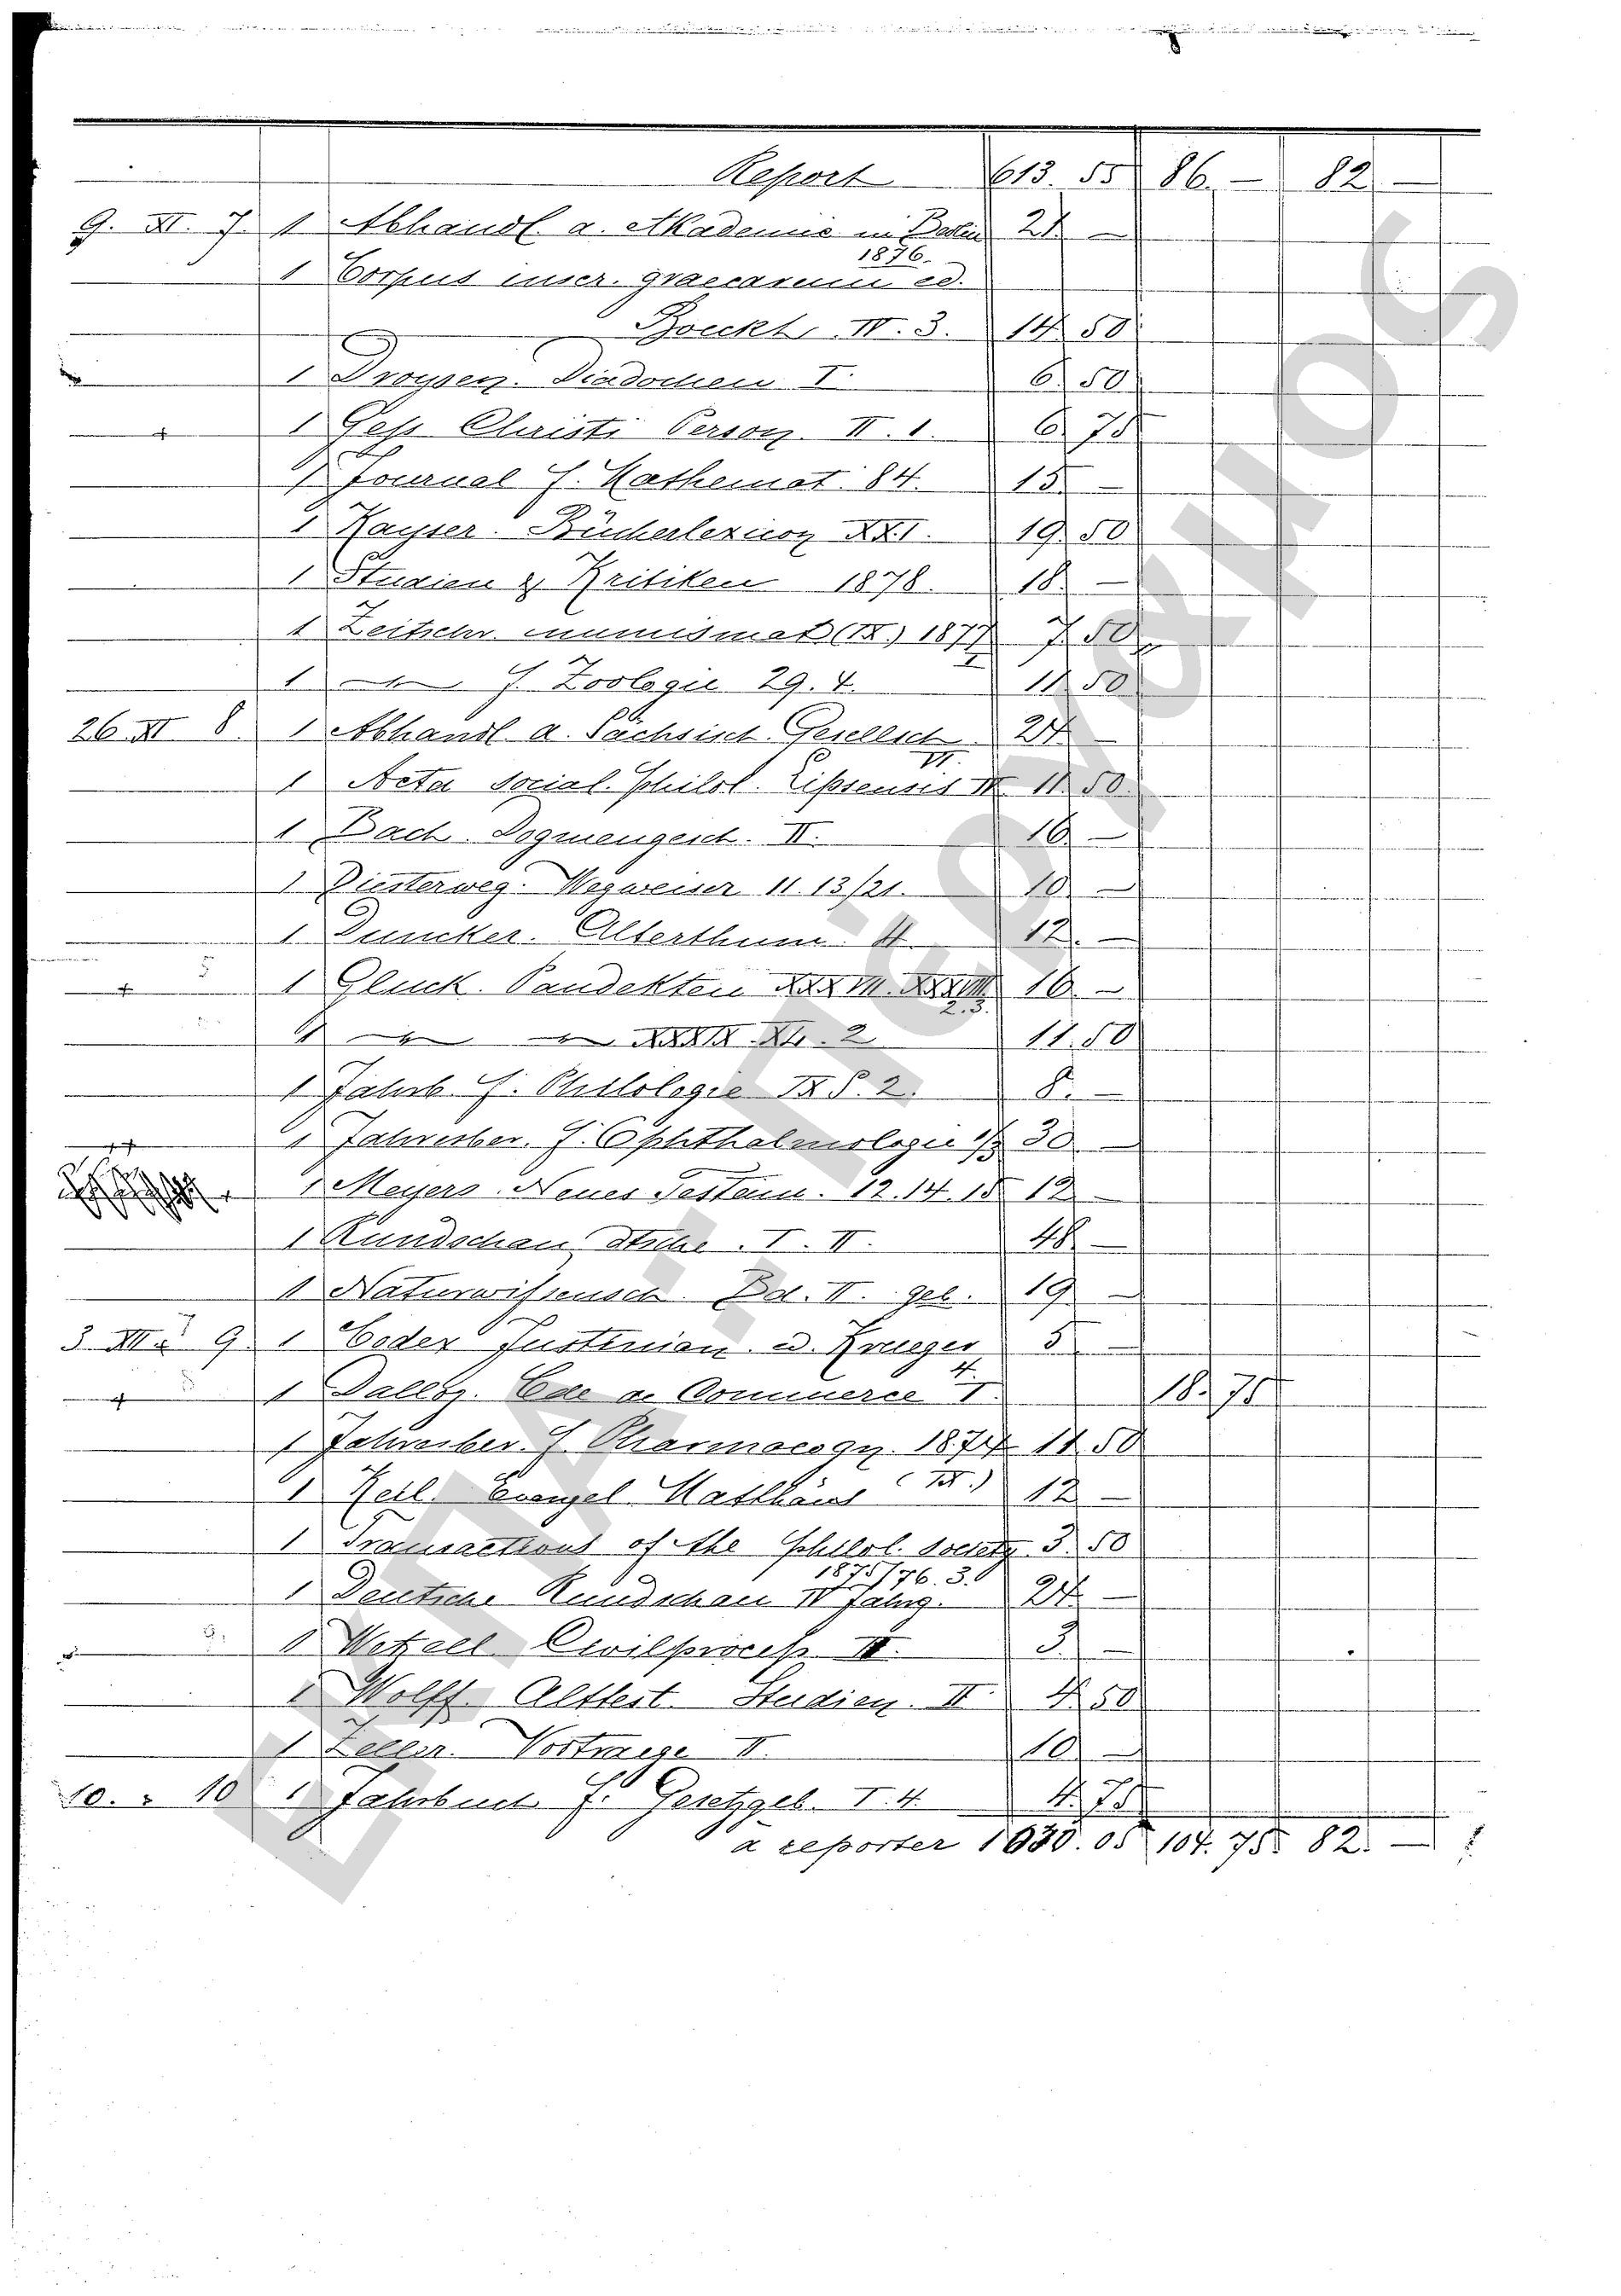 Report 613. 55 86. — 82. —
9. XI. 7. 1 Abhandl. d. Akademie in Berlin 21. —
1876.
1 Corpus inscr. graecarum ed.
Boeckh. IV. 3. 14. 50
1 Droysen. Diadochen I. 6. 50
1 Gess Christi Person. II. 1. 6. 75
1 Journal f. Mathemat. 84. 15. —
1 Kayser. Bücherlexicon XXI. 19. 50
1 Studien & Kritiken 1878. 18. —
1 Zeitschr. numismat (IX.) 1877 7. 50
1 — f. Zoologie 29. 4. 11. 50
26. XI 8. 1 Abhandl. d. Sächsisch. Gesellsch. 24. —
VI.
1 Acta social. philol. Lipsensis 11. 50.
1 Bach. Dogmengesch. II. 16. —
1 Diesterweg. Wegweiser 11. 13/21. 10. —
1 Duncker. Alterthum. 4. 12. —
1 Gluck. Pandekten 16. —
2. 3.
1 — — 2. 11. 50
1 Jahrb. f. Philologie IX S. 2. 8. —
1 Jahresber. f. Ophthalmologie 30. —
1 Meyers. Neues Testam. 12. 14. 15 12. —
1 Rundschau dtsche. I. II. 48. —
1 Naturwissensch. Bd. II. geb. 19. —
3. XII. 9. 1 Codex Justinian. ed. Krueger 5. —
4.
1 Dalloz. Code de Commerce I. 18. 75
1 Jahresber. f. Pharmacogn. 1874 11. 50
1 Keil. Evangel. Matthäus (IX.) 12. —
1 Transactions of the philol. Society 3. 50
1875/76. 3.
1 Deutsche Rundschau IV Jahrg. 24. —
1 Wetzell Civilprocess III. 3. —
1 Wolff. Alttest. Studien. II 4. 50
1 Zeller. Vortraege II. 10. —
10. " 10 1 Jahrbuch f. Gesetzgeb. I. 4. 4. 75
à reporter 1030. 05 104. 75 82. —
ΕΠΑ.: Πέργαμος